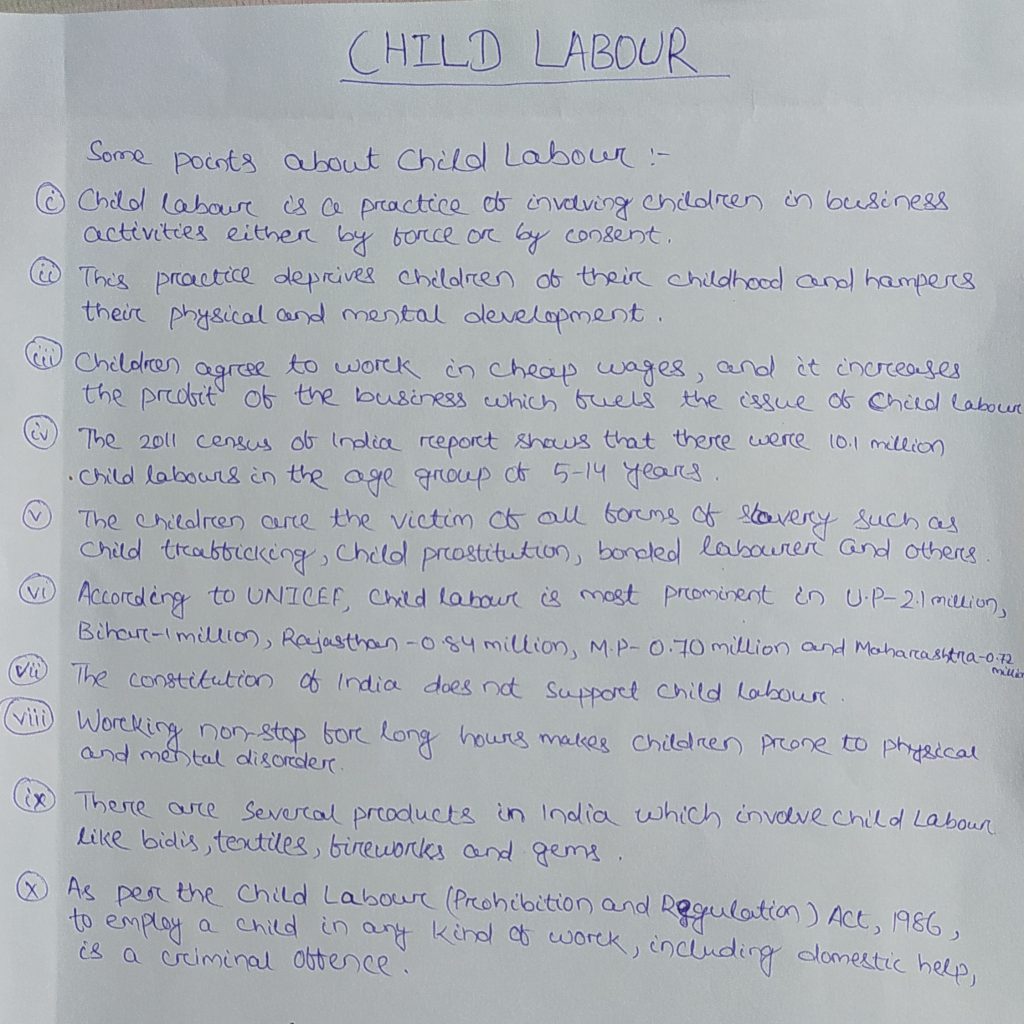 CHILD LABOUR
Some points about Child Labour :-
(i) Child labour is a practice of involving children in business
activities either by force or by consent.
(ii) This practice deprives children of their childhood and hampers
their physical and mental development.
(iii) Children agree to work in cheap wages, and it increases
the profit of the business which fuels the issue of Child Labour
(iv) The 2011 census of India report shows that there were 10.1 million
child labours in the age group of 5-14 years.
(v) The children are the victim of all forms of slavery such as
child trafficking, child prostitution, bonded labourer and others.
(vi) According to UNICEF, child labour is most prominent in U.P-2.1 million,
Bihar-1 million, Rajasthan-0.84 million, M.P-0.70 million and Maharashtra-0.72
million
(vii) The constitution of India does not support child labour.
(viii) Working non-stop for long hours makes children prone to physical
and mental disorder.
(ix) There are several products in India which involve child Labour
like bidis, textiles, fireworks and gems.
(x) As per the Child Labour (Prohibition and Regulation) Act, 1986,
to employ a child in any kind of work, including domestic help,
is a criminal offence.